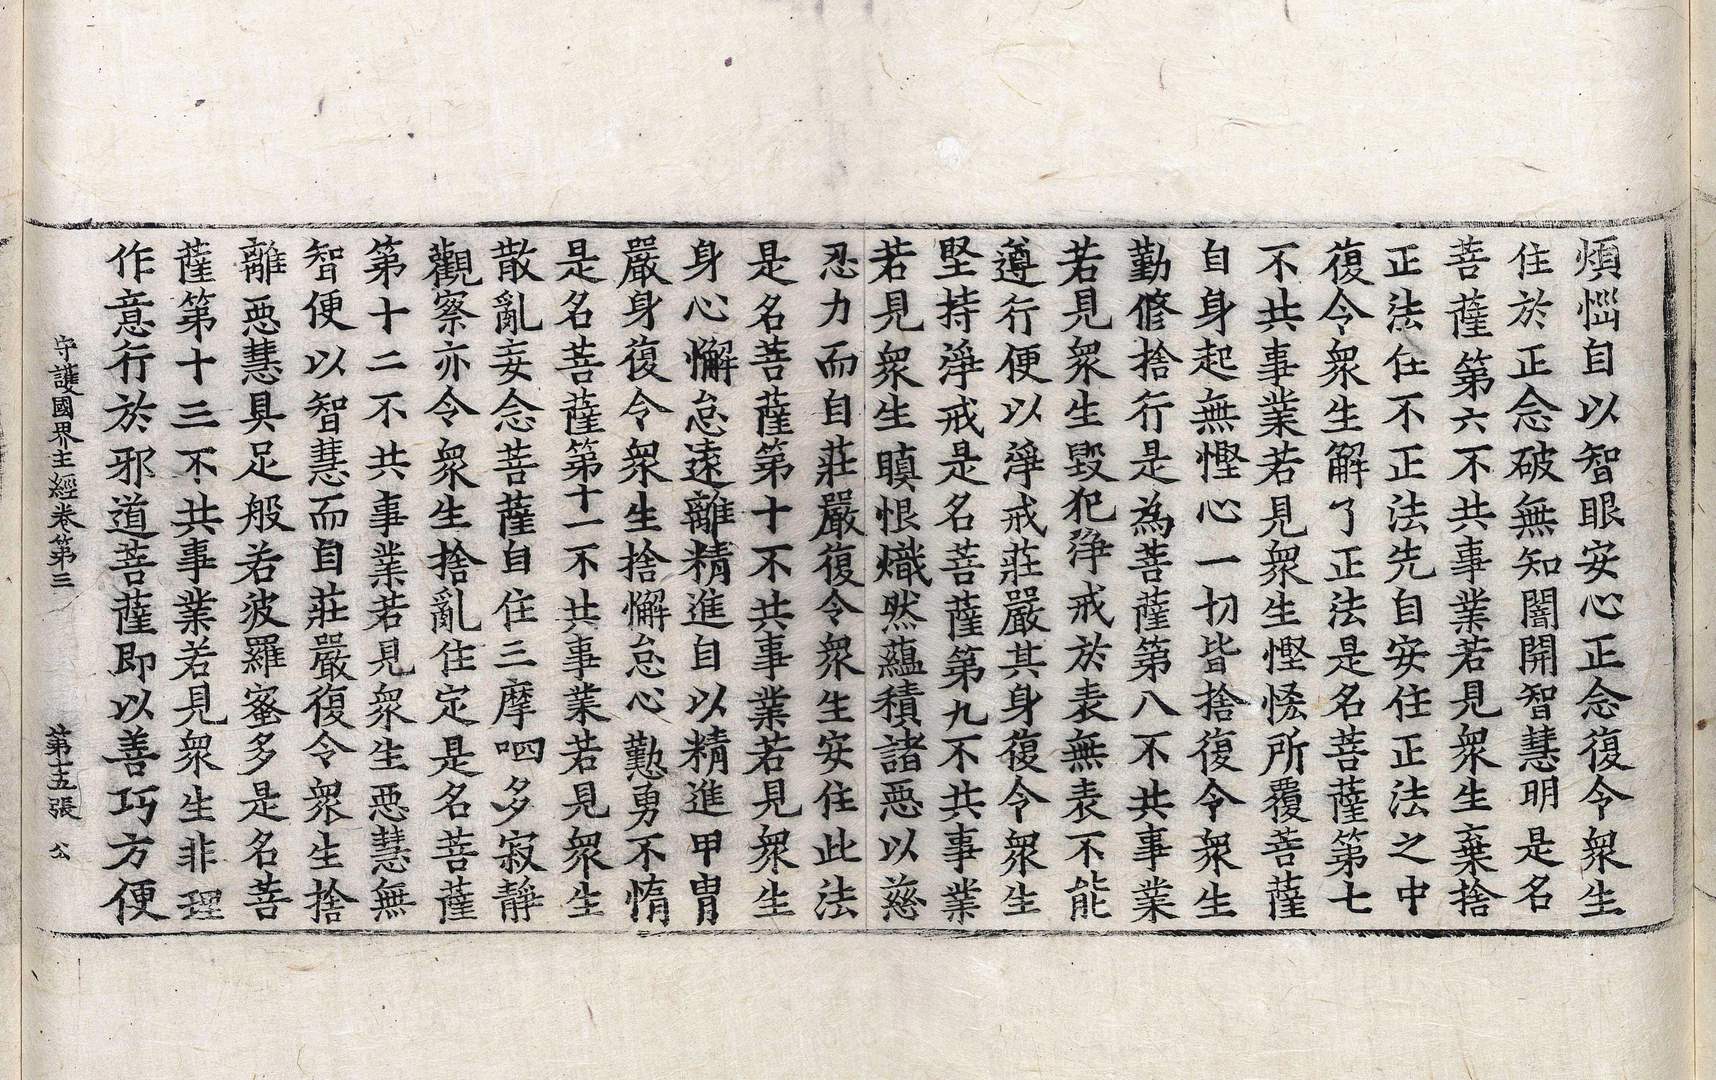 煩惱自以智眼安心正念復令衆生
住於正念破無知闇開智慧明是名
菩薩第六不共事業若見衆生棄捨
正法住不正法先自安住正法之中
復令衆生解了正法是名菩薩第七
不共事業若見衆生慳悋所覆菩薩
自身起無慳心一切皆捨復令衆生
勤修捨行是為菩薩第八不共事業
若見衆生毀犯淨戒於表無表不能
遵行便以淨戒莊嚴其身復令衆生
堅持淨戒是名菩薩第九不共事業
若見衆生瞋恨熾然蘊積諸惡以慈
忍力而自莊嚴復令衆生安住此法
是名菩薩第十不共事業若見衆生
身心懈怠遠離精進自以精進甲冑
嚴身復令衆生捨懈怠心勤勇不惰
是名菩薩第十一不共事業若見衆生
散亂妄念菩薩自住三摩呬多寂靜
觀察亦令衆生捨亂住定是名菩薩
第十二不共事業若見衆生惡慧無
智便以智慧而自莊嚴復令衆生捨
離惡慧具足般若波羅蜜多是名菩
薩第十三不共事業若見衆生非理
作意行於邪道菩薩即以善巧方便
守護國界主經卷第三 第十五張 公